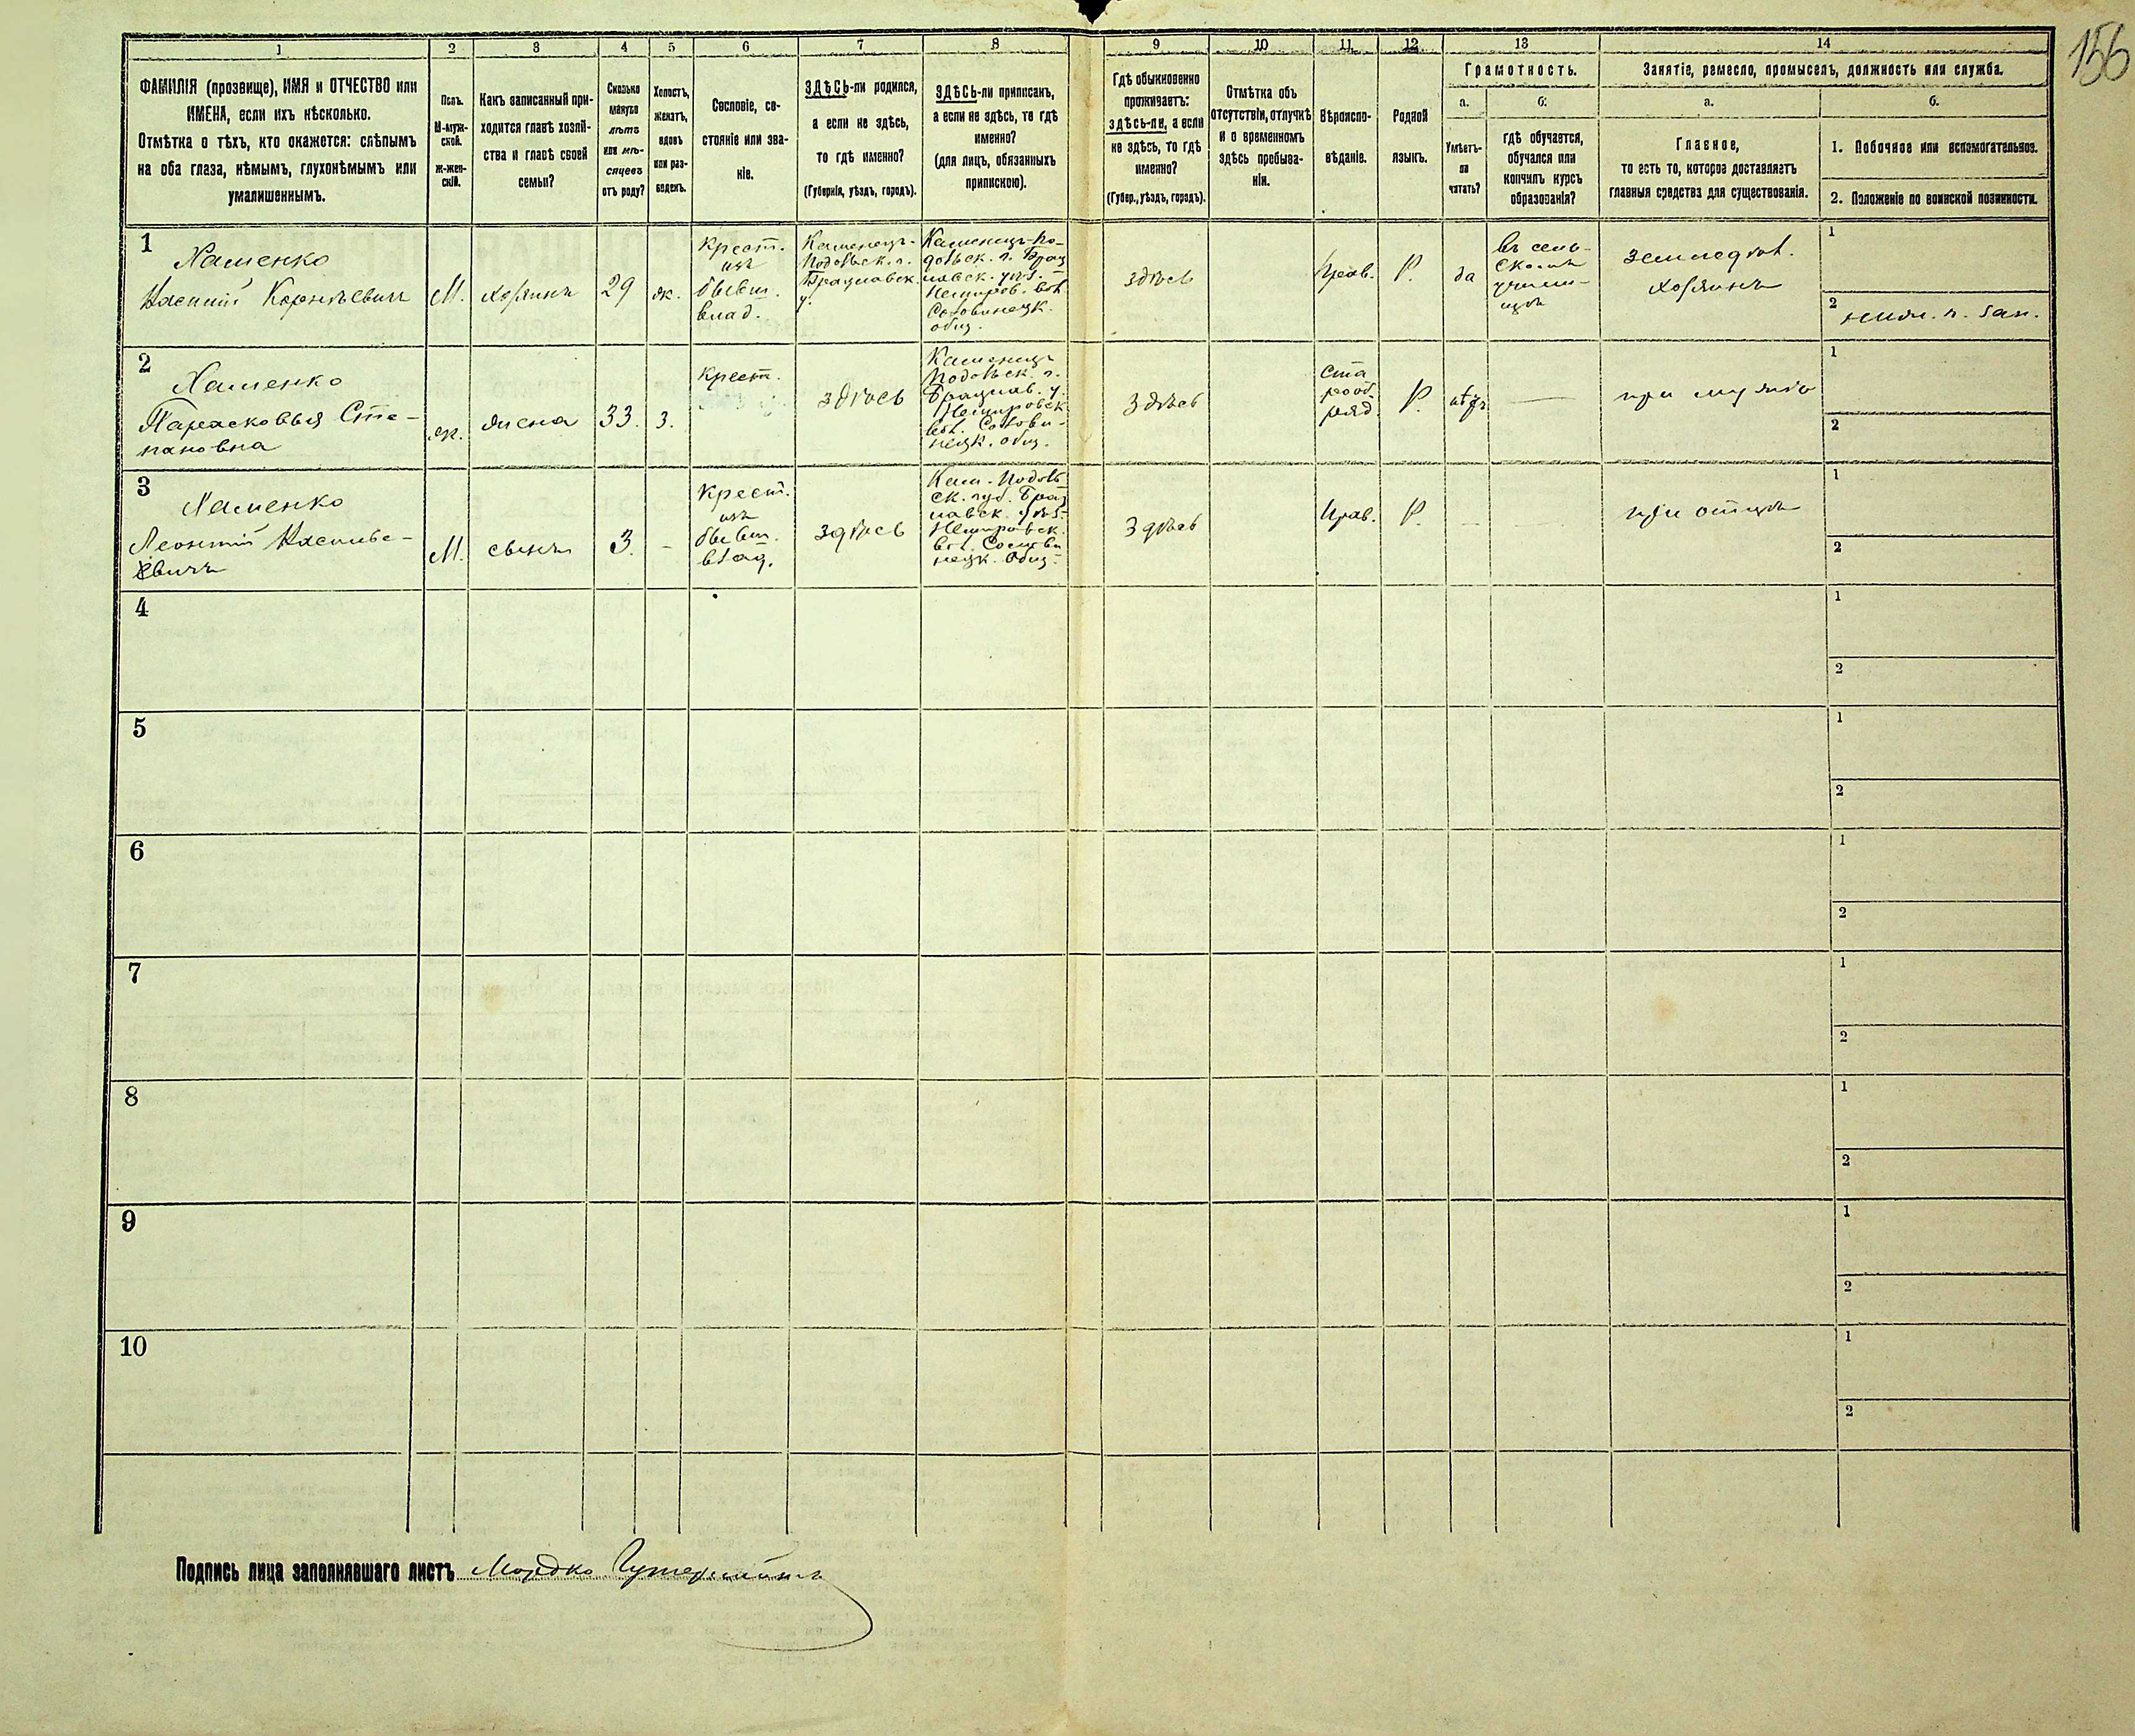 156
1 2 3 4 5 6 7 8 9 10 11 12 13 14
ФАМИЛІЯ (прозвище), ИМЯ и ОТЧЕСТВО или
ИМЕНА, если ихъ нѣсколько.
Отмѣтка о тѣхъ, кто окажется: слѣпымъ
на оба глаза, нѣмымъ, глухонѣмымъ или
умалишеннымъ.
Полъ.
М-муж-
ской.
ж-жен-
скій.
Какъ записанный при-
ходится главѣ хозяй-
ства и главѣ своей
семьи?
Сколько
минуло
лѣтъ
или мѣ-
сяцевъ
отъ роду?
Холостъ,
женатъ,
вдовъ
или раз-
веденъ.
Сословіе, со-
стояніе или зва-
ніе.
ЗДѢСЬ-ли родился,
а если не здѣсь,
то гдѣ именно?
(Губернія, уѣздъ, городъ).
ЗДѢСЬ-ли приписанъ,
а если не здѣсь, то гдѣ
именно?
(для лицъ, обязанныхъ
припискою).
Гдѣ обыкновенно
проживаетъ:
здѣсь-ли, а если
не здѣсь, то гдѣ
именно?
(Губер., уѣздъ, городъ).
Отмѣтка объ
отсутствіи, отлучкѣ
и о временномъ
здѣсь пребыва-
ніи.
Вѣроиспо-
вѣданіе.
Родной
языкъ.
Грамотность.
а.
Умѣетъ-
ли
читать?
б.
гдѣ обучается,
обучался или
кончилъ курсъ
образованія?
Занятіе, ремесло, промыселъ, должность или служба.
а.
Главное,
то есть то, которое доставляетъ
главныя средства для существованія.
б.
1. Побочное или вспомогательное.
2. Положеніе по воинской повинности.
1
Хаменко
М.
хозяинъ
29
ж.
крест.
изъ
бывш.
влад.
Каменецъ-
Подольск. г.
Брацлавск.
у.
Каменецъ-По-
дольск. г. Брац
лавск. уѣз.
Немиров. вол
общ.
здѣсь
Прав.
Р.
да
въ сель-
скомъ
учили-
щѣ
земледѣл.
хозяинъ
1
2
2
Хаменко
Параековья Сте-
пановна
ж.
жена
33.
з.
Крест.
здѣсь
Каменецъ
Подольск. г.
Брацлав. у
Немировск
вол.
нецк. общ.
здѣсь
Ста
рооб
ряд.
Р.
нѣтъ
—
при мужѣ
1
2
3
Хаменко
Леонтій
М.
сынъ
3.
-
Крест.
изъ
бывш.
влад.
здѣсь
Кам. Подоль
ск. губ. Брац
лавск. уѣз
Немировск.
вол.
нецк. общ.
здѣсь
Прав.
Р.
- -
при отцѣ
1
2
4
1
2
5
1
2
6
1
2
7
1
2
8
1
2
9
1
2
10
1
2
Подпись лица заполнявшаго листъ Мордко